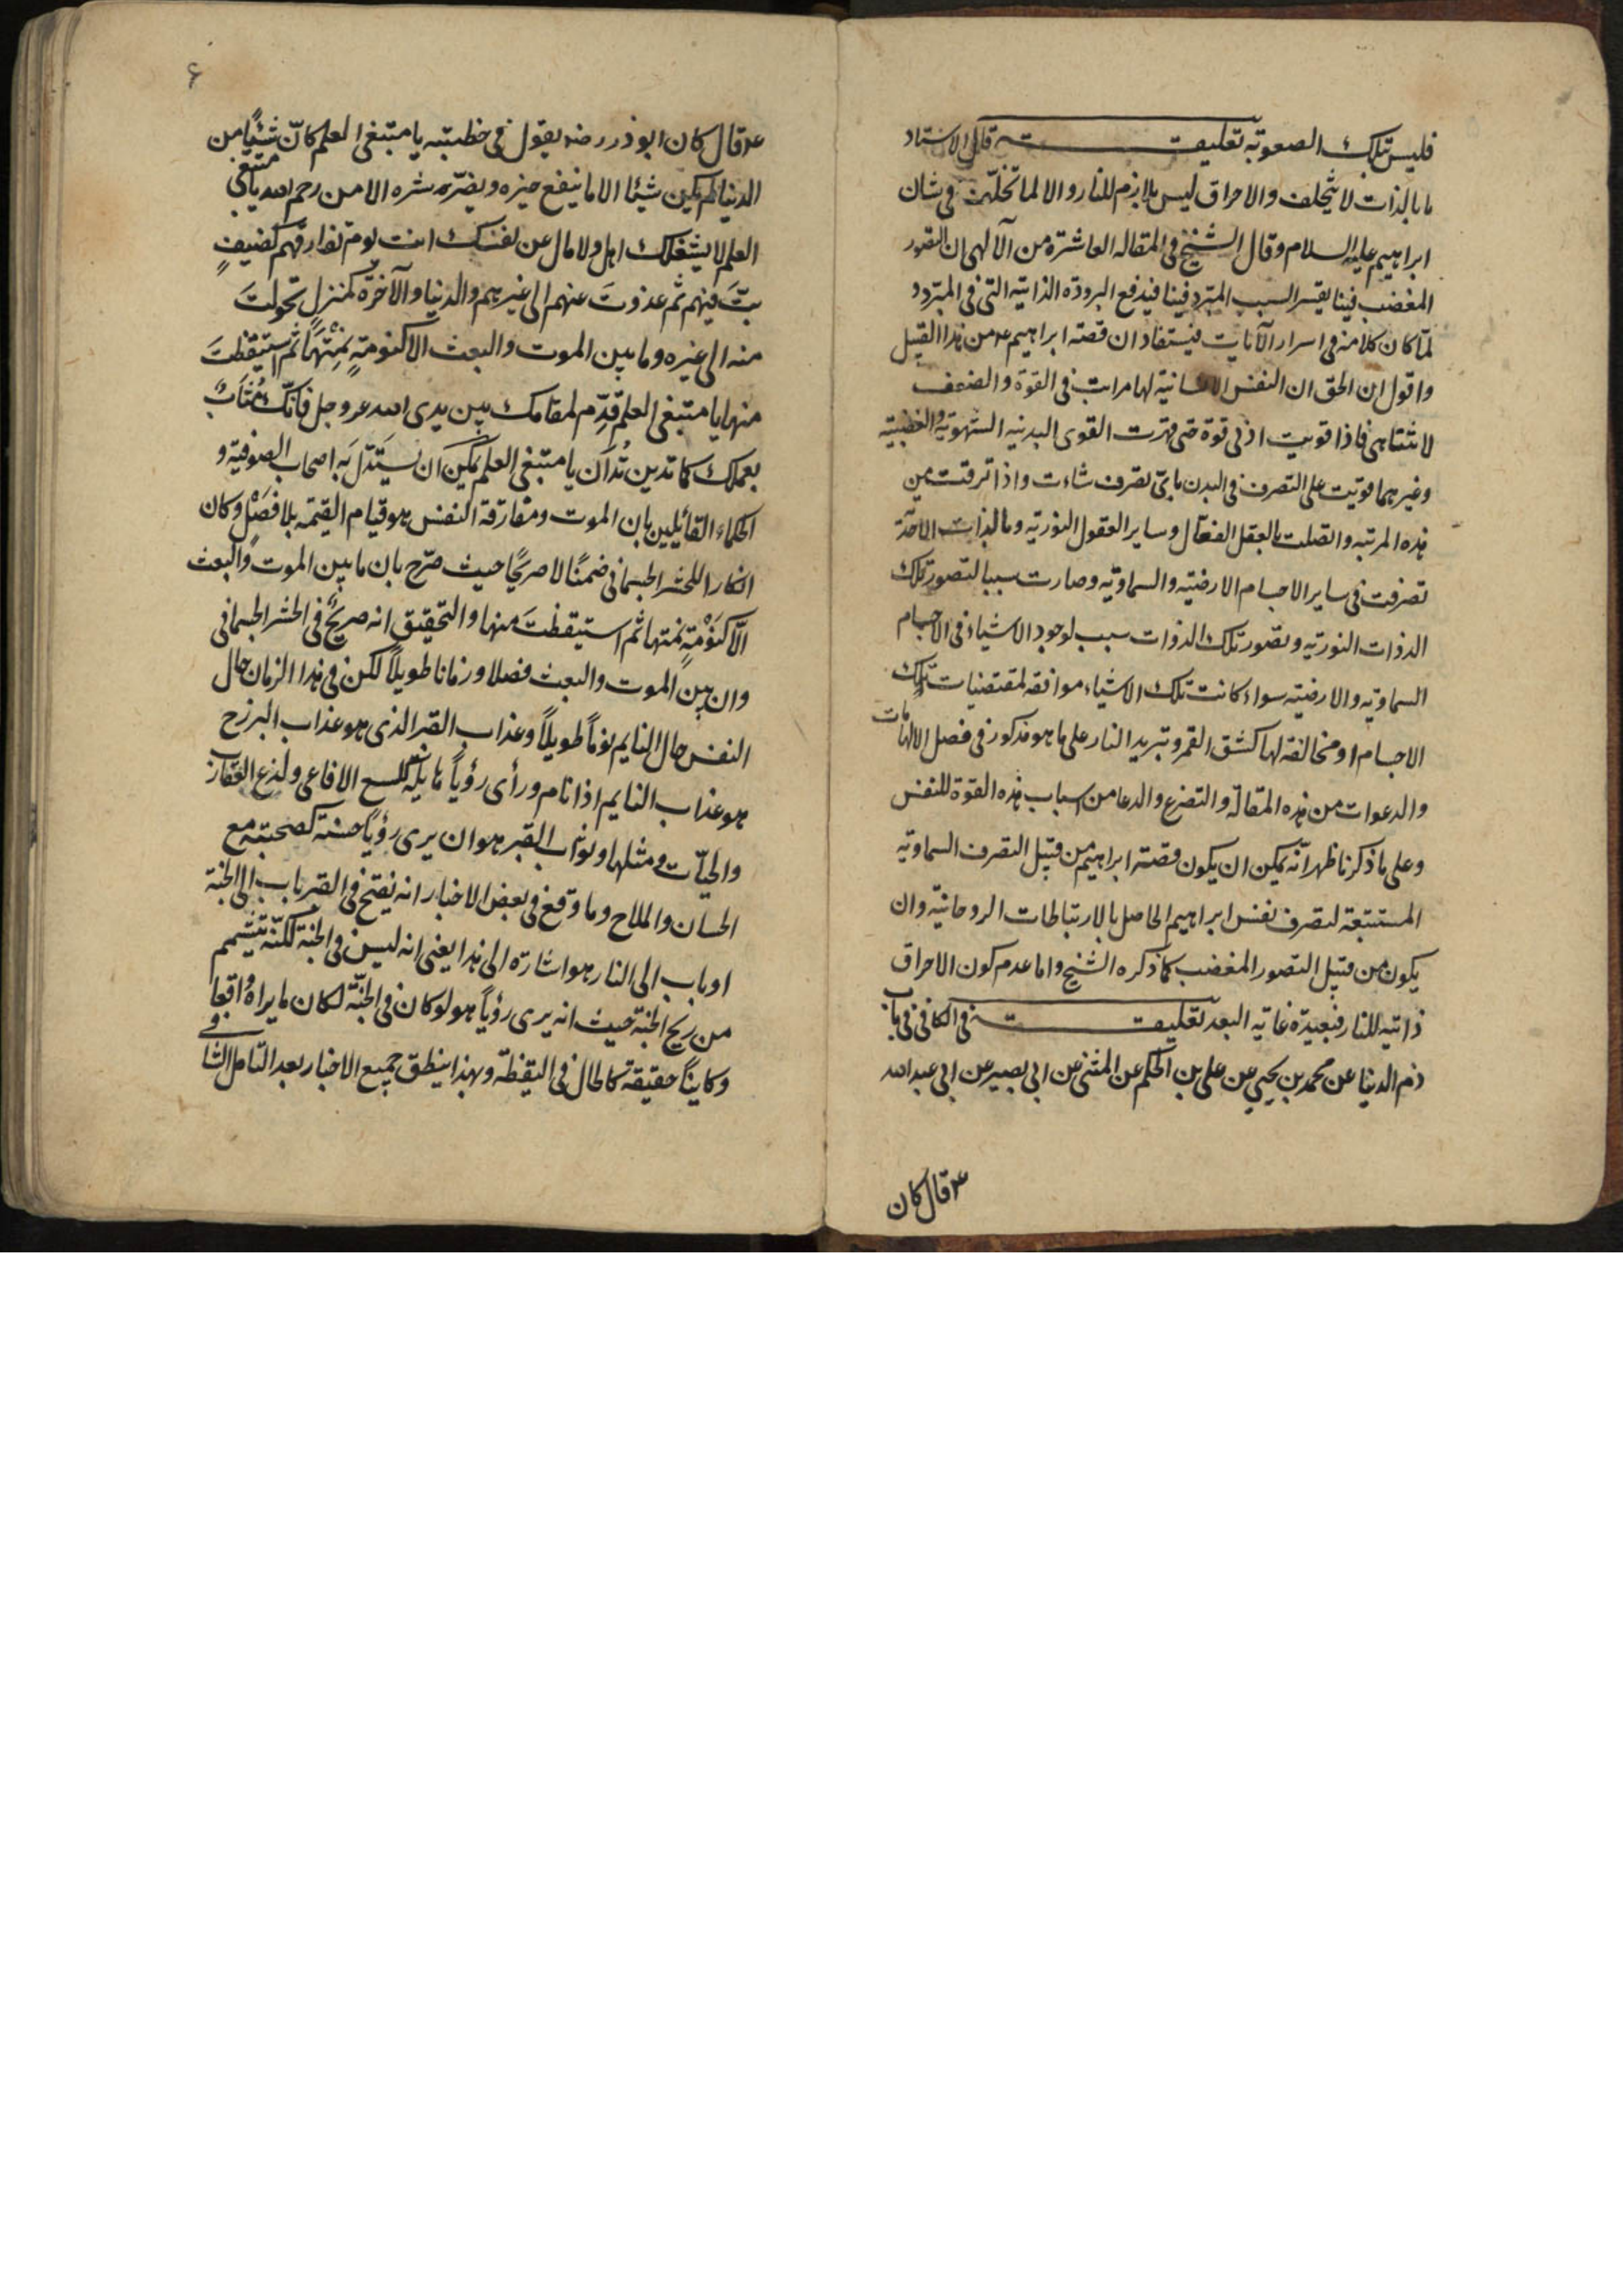 فليس تلك الصعوبة تعليقة قال الاستاد
ما بالذات لا يتخلف والاحراق ليس بلازم للنار والا لما تخلّف في شان
ابراهيم عليه السلام وقال الشيخ في المقاله العاشرة من الآلهى ان التصور
المغضب فينا يقسر السبب المبرّد فينا فيدفع البرودة الذاتيه التى فى المبرد و
لمّا كان كلامنه فى اسرار الآنايت فيستفاد ان قصة ابراهيم ع من هذا القبيل
واقول ان الحق ان النفس الانسانية لها مراتب فى القوة والضعف
لا تتناهى فاذا قويت ادنى قوة حتى قهرت القوى البدنيه الشهوية والغضبية
وغيرهما قويت على التصرف فى البدن باىّ تصرف شاءت واذا ترقت من
هذه المرتبه واتصلت بالعقل الفعّال وساير العقول النورية وما لذات الاخرة
تصرفت فى ساير الاجسام الارضيّه والسماويّه وصارت سببا لتصور تلك
الذوات النوريّه وتصور تلك الذوات سبب لوجود الاشياء فى الاجسام
السماويّه والارضيّه سواء كانت تلك الاشياء موافقة لمقتضيات تلك
الاجسام او مخالفة لها كشق القمر وتبريد النار على ما هو مذكور فى فصل الالهامات
والدعوات من هذه المقالة والتضرع والدعا من اسباب هذه القوة للنفس
وعلى ما ذكرنا ظهر انّه يمكن ان يكون قصة ابراهيم من قبيل التصرف السماويّه
المستتبعة لتصرف نفس ابراهيم الحاصل بالارتباطات الروحانيّه وان
يكون من قبيل التصور المغضب كما ذكره الشيخ واما عدم كون الاحراق
ذاتيه للنار فبعيدة غاية البعد تعليقة فى الكافى فى باب
ذم الدنيا عن محمد بن يحيى عن على بن الحكم عن المثنى عن ابى بصير عن ابى عبد الله
ع قال كان
۶
ع قال كان ابوذر رضه يقول فى خطبته يا مبتغى العلم كانّ شيئًا من
الدنيا لم يكن شيئا الا ما ينفع خيره ويضرّ شره الا من رحم الله يا مبتغى
العلم لا يشغلك اهل ولا مال عن نفسك انت يوم تفارقهم كضيفٍ
بتَّ فيهم ثم غدوتَ عنهم الى غيرهم والدنيا والآخرة كمنزل تحولتَ
منه الى غيره وما بين الموت والبعث الا كنومةٍ نمتَها ثم استيقظتَ
منها يا مبتغى العلم قدِّم لمقامك بين يدى الله عز وجل فانّك مُثابٌ
بعملك كما تدين تُدان يا مبتغى العلم يمكن ان يستدَلّ به اصحاب الصوفيّه و
الحكماء القائلين بان الموت ومفارقة النفس هو قيام القيمه بلا فصْلٍ وكان
انكارا للحشر الجسمانى ضمنًا لا صريحًا حيث صرّح بان ما بين الموت والبعث
الّا كنَوْمَةٍ نمتها ثم استيقظتَ منها والتحقيق انه صريحٌ فى الحشر الجسمانى
وان بين الموت والبعث فصلا وزمانا طويلاً لكن فى هذا الزمان حال
النفس حال النايم نومًا طويلاً وعذاب القبر الذى هو عذاب البرزخ
هو عذاب النايم اذا نام ورأى رؤياً هايلة كلسع الافاعى ولذع العقارب
والحيّات ومثلها وثواب القبر هو ان يرى رؤياً حسنة كصحبته مع
الحسان والملاح وما وقع فى بعض الاخبار انه يفتح فى القبر باب الى الجنة
او باب الى النار هو اشارة الى هذا يعنى انه ليس فى الجنة لكنّه تنشّم
من ريح الجنة حيث انه يرى رؤياً هو لو كان فى الجنّة لكان ما يراهُ واقعا و
وكاينًا حقيقة كالحال فى اليقظة وبهذا ينطق جميع الاخبار بعد التامل الشافى